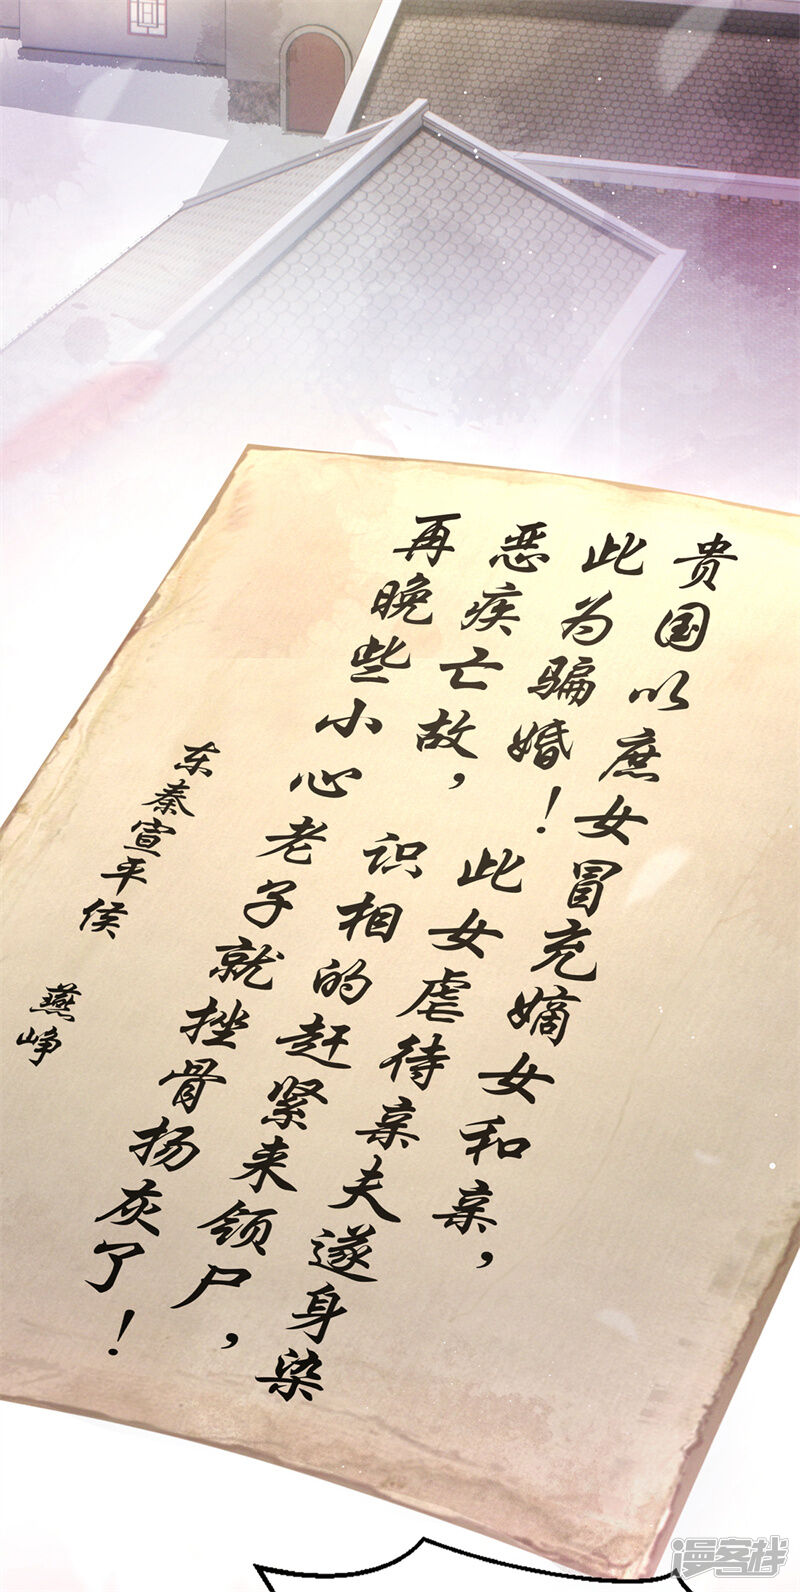 贵国以庶女冒充嫡女和亲，
此为骗婚！此女虐待亲夫遂身染
恶疾亡故，识相的赶紧来领尸，
再晚些小心老子就挫骨扬灰了！
东秦宣平侯 燕峥
漫客栈